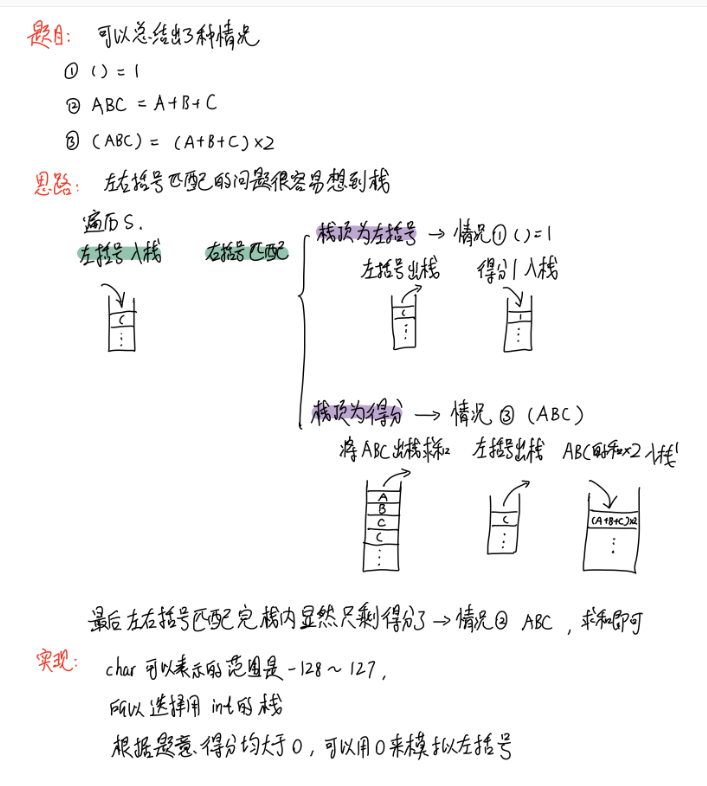 题目: 可以总结出3种情况
① () = 1
② ABC = A+B+C
③ (ABC) = (A+B+C)×2
思路: 左右括号匹配的问题很容易想到栈
遍历S.
左括号入栈 右括号匹配
栈顶为左括号 → 情况① ()=1
左括号出栈 得分1入栈
(
⋮
(
⋮
1
⋮
栈顶为得分 → 情况③ (ABC)
将ABC出栈求和 左括号出栈 ABC的和×2入栈
A
B
C
(
⋮
(
⋮
(A+B+C)×2
⋮
最后左右括号匹配完 栈内显然只剩得分了 → 情况② ABC , 求和即可
实现: char 可以表示的范围是 -128 ~ 127,
所以选择用 int的栈
根据题意 得分均大于0, 可以用0来模拟左括号